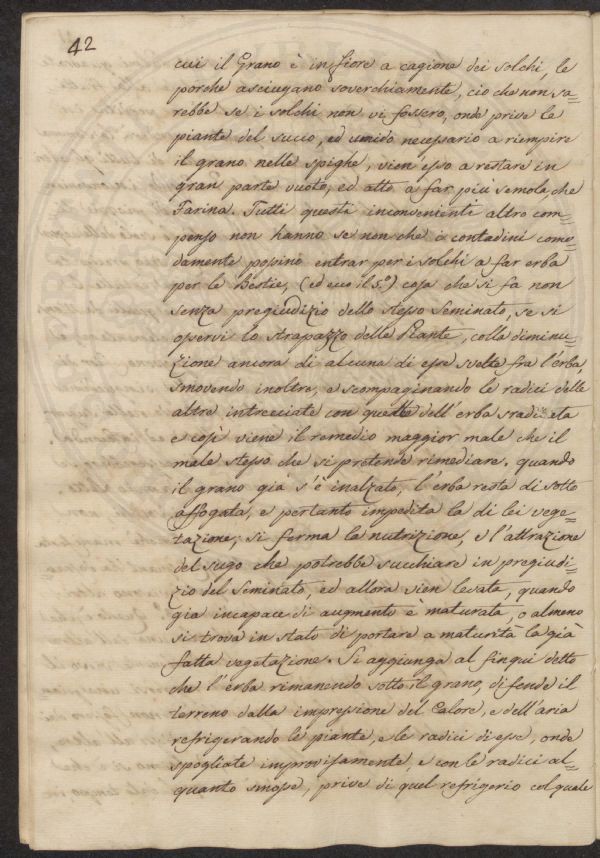 42
cui il Grano è in fiore a cagione dei solchi, le
porche asciugano soverchiamente, ciò che non sa=
rebbe se i solchi non vi fossero, onde prive le
piante del succo, ed umido necessario a riempire
il grano nelle spighe, vien esso a restare in
gran parte vuoto, ed atto a far più semola, che
Farina. Tutti questi inconvenienti altro com=
penso non hanno se non che i contadini como=
damente possino entrar per i solchi a far erba
per le Bestie, (ed ecco il 5.º) cosa che si fa non
senza pregiudizio dello stesso Seminato, se si
osservi lo strapazzo delle Piante, colla diminu=
zione ancora di alcuna di esse svelte fra l'erba,
smovendo inoltre, e scompaginando le radici delle
altre intrecciate con quelle dell'erba sradicata
e così viene il remedio maggior male che il
male stesso che si pretende rimediare. quando
il grano già s'è inalzato, l'erba resta di sotto
affogata, e pertanto impedita la di lei vege=
tazione, si ferma la nutrizione, e l'attrazione
del sugo che potrebbe succhiare in pregiudi=
zio del Seminato, ed allora vien levata, quando
già incapace di augmento è maturata, o almeno
si trova in stato di portare a maturità la già
fatta vegetazione. Si aggiunga al finqui detto
che l'erba rimanendo sotto il grano, difende il
terreno dalla impressione del Calore, e dell'aria
refrigerando le piante, e le radici di esse, onde
spogliate improvisamente, e con le radici al=
quanto smosse, prive di quel refrigerio col quale